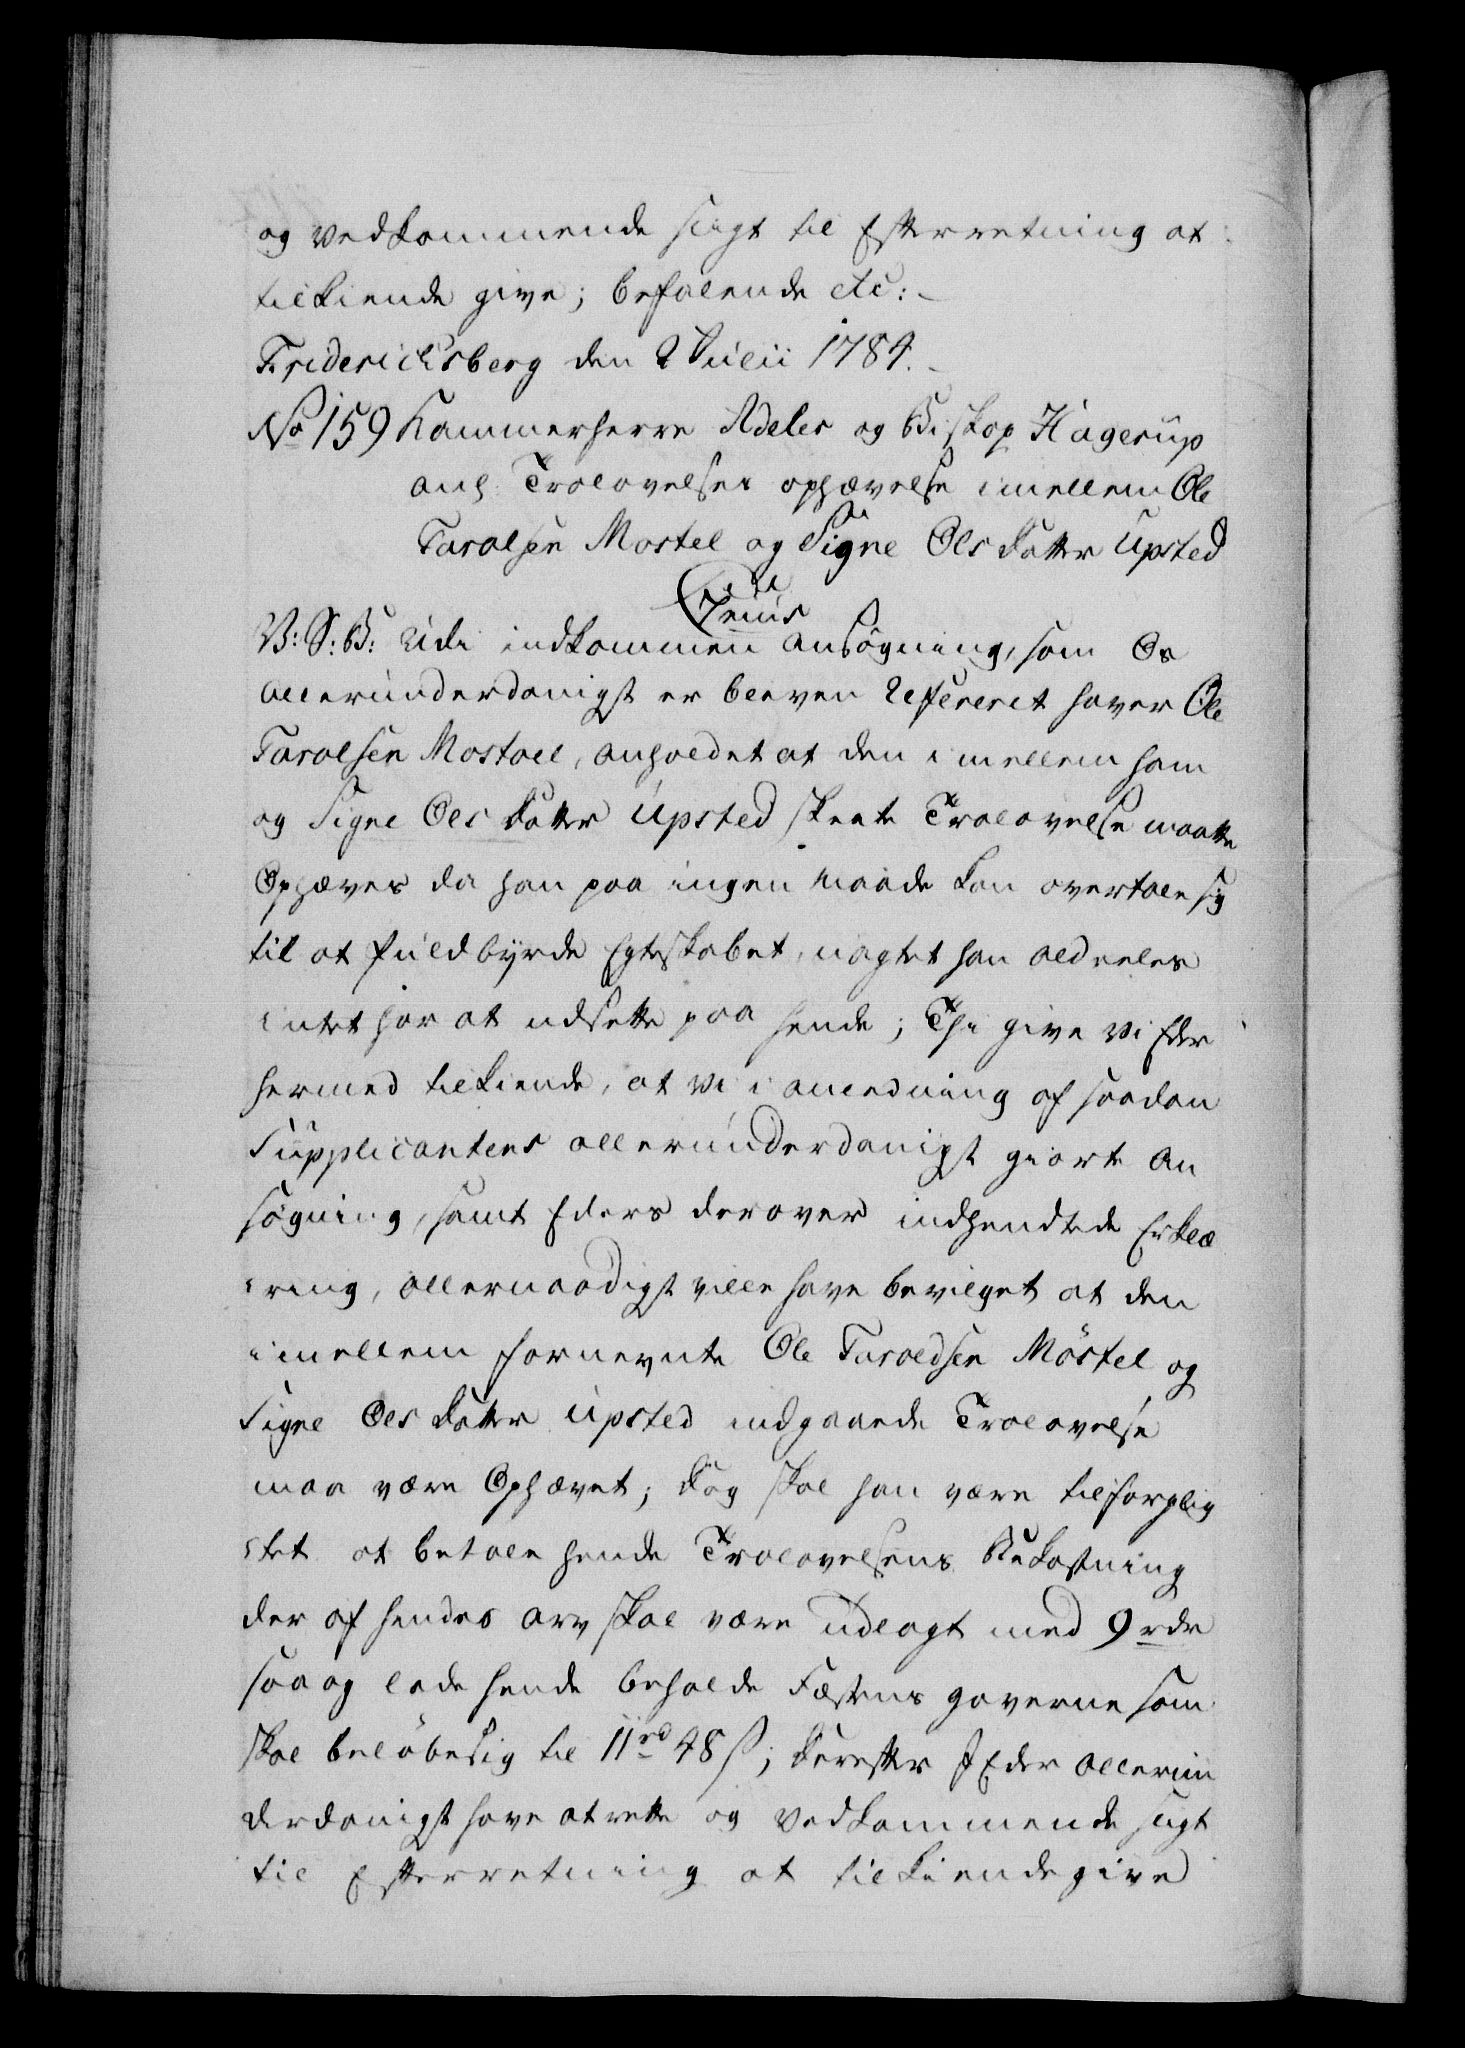 og Vedkommende sligt til Efterretning at
tilkiende give; befalende etc:
Friderichsberg den 2 Julii 1784.
No 159 Kammerherre Adeler og Biskop Hagerup
ang Trolovelses ophævelse imellem Ole
Tarolsen Mostel og Signe Ols Datter Upsted
V: S: B: Udi indkommen Ansøgning, som Os
allerunderdanigst er bleven Refereret haver Ole
Tarolsen Mostoel, anholdet at den imellem ham
og Signe Oles Datter Upsted skeete Trolovelse maatte
Ophæves da han paa ingen maade kan overtale sig
til at fuldbyrde Egteskabet, uagtet han aldeeles
intet har at udsette paa hende; Thi give Vi Eder
hermed tilkiende, at Vi i anledning af saadan
Supplicantens allerunderdanigst giorte An
søgning, samt Eders derover indhendtede Erklæ
ring, allernaadigst ville have bevilget at den
imellem fornevnte Ole Taroldsen Möstel og
Signe Oles Datter Upsted indgaaede Trolovelse
maa være Ophævet; dog skal han være tilforplig
tet at betale hende Trolovelsens Bekostning
der af hendes Arv skal være udlagt med 9 rdr
saa og lade hende beholde Fæstens gaverne som
skal beløbe sig til 11 rd 48 s; Derefter I Eder allerun
derdanigst have at rette og Vedkommende sligt
til Efterretning at tilkiendegive